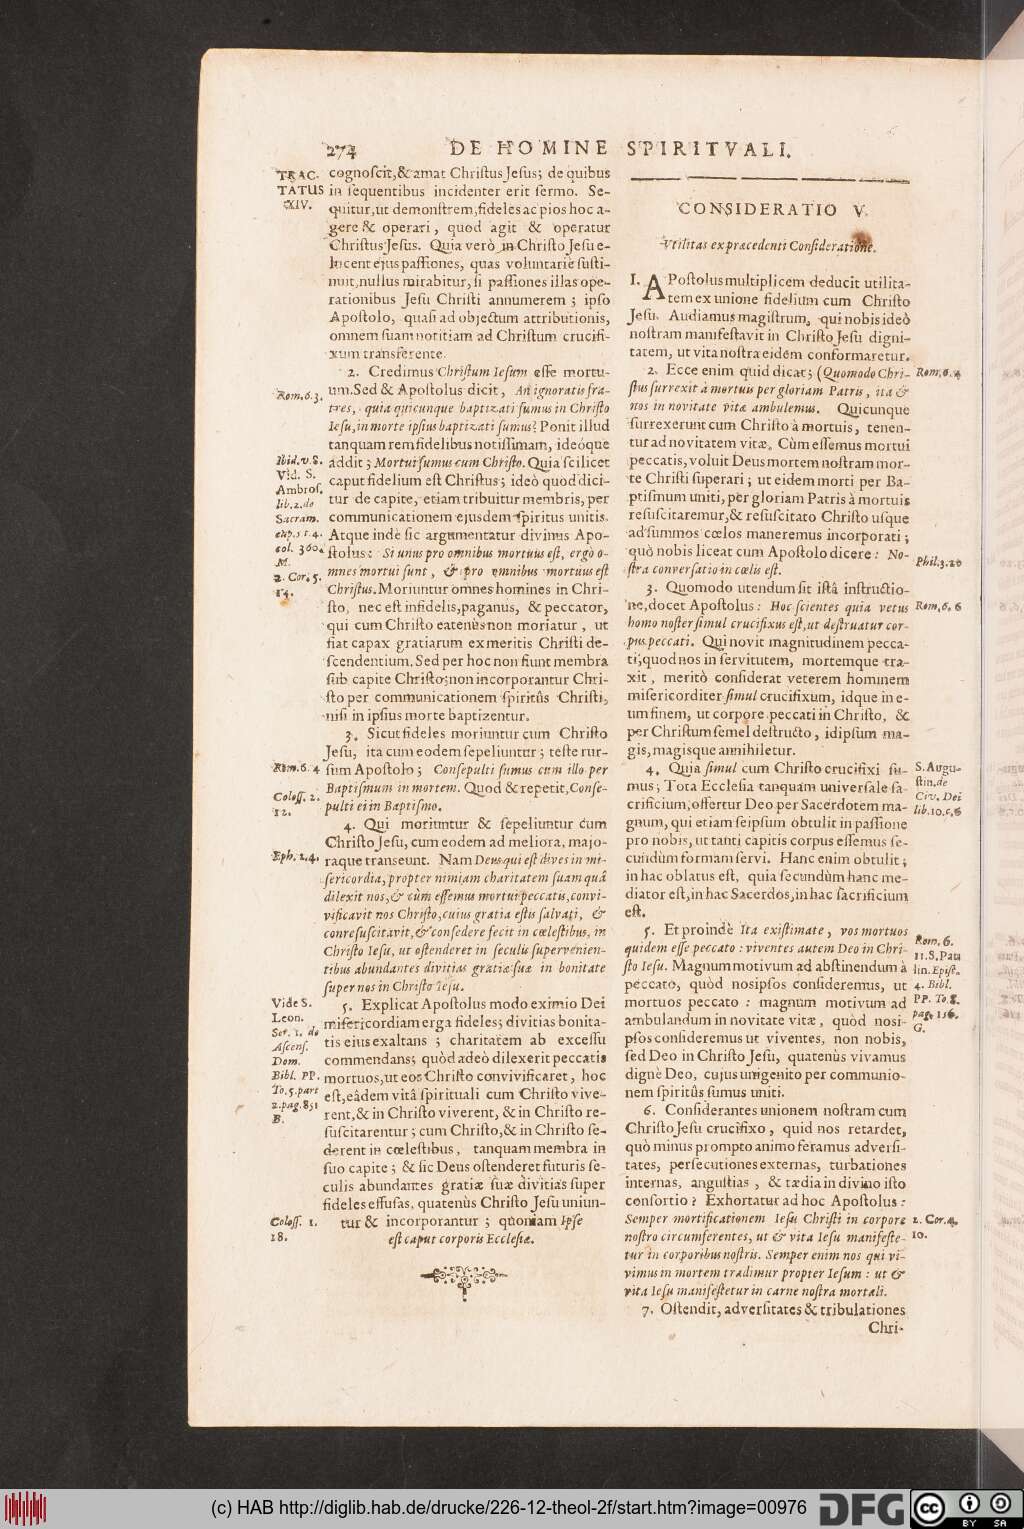 274 DE HOMINE SPIRITVALI.
TRAC-
TATUS
XIV.
cognoscit, & amat Christus Jesus; de quibus
in sequentibus incidenter erit sermo. Se-
quitur, ut demonstrem, fideles ac pios hoc a-
gere & operari, quod agit & operatur
Christus Jesus. Quia verò in Christo Jesu e-
lucent ejus passiones, quas voluntariè susti-
nuit, nullus mirabitur, si passiones illas ope-
rationibus Jesu Christi annumerem; ipso
Apostolo, quasi ad objectum attributionis,
omnem suam notitiam ad Christum crucifi-
xum transferente.
2. Credimus Christum Iesum esse mortu-
um. Sed & Apostolus dicit, An ignoratis fra-
tres, quia quicunque baptizati sumus in Christo
Iesu, in morte ipsius baptizati sumus? Ponit illud
tanquam rem fidelibus notissimam, ideóque
addit; Mortui sumus cum Christo. Quia scilicet
caput fidelium est Christus; ideò quod dici-
tur de capite, etiam tribuitur membris, per
communicationem ejusdem spiritus unitis.
Atque inde sic argumentatur divinus Apo-
stolus: Si unus pro omnibus mortuus est, ergò o-
mnes mortui sunt, & pro omnibus mortuus est
Christus. Moriuntur omnes homines in Chri-
sto, nec est infidelis, paganus, & peccator,
qui cum Christo eatenùs non moriatur, ut
fiat capax gratiarum ex meritis Christi de-
scendentium. Sed per hoc non fiunt membra
sub capite Christo; non incorporantur Chri-
sto per communicationem spiritûs Christi,
nisi in ipsius morte baptizentur.
3. Sicut fideles moriuntur cum Christo
Jesu, ita cum eodem sepeliuntur; teste rur-
sum Apostolo; Consepulti sumus cum illo per
Baptismum in mortem. Quod & repetit, Conse-
pulti ei in Baptismo.
4. Qui moriuntur & sepeliuntur cum
Christo Jesu, cum eodem ad meliora, majo-
raque transeunt. Nam Deus qui est dives in mi-
sericordia, propter nimiam charitatem suam quâ
dilexit nos, & cùm essemus mortui peccatis, convi-
vificavit nos Christo, cuius gratia estis salvati, &
conresuscitavit, & consedere fecit in cœlestibus, in
Christo Iesu, ut ostenderet in seculis supervenien-
tibus abundantes divitias gratiæ suæ in bonitate
super nos in Christo Iesu.
5. Explicat Apostolus modo eximio Dei
misericordiam erga fideles; divitias bonita-
tis eius exaltans; charitatem ab excessu
commendans; quòd adeò dilexerit peccatis
mortuos, ut eos Christo convivificaret, hoc
est, eâdem vitâ spirituali cum Christo vive-
rent, & in Christo viverent, & in Christo re-
suscitarentur; cum Christo, & in Christo se-
derent in cœlestibus, tanquam membra in
suo capite; & sic Deus ostenderet futuris se-
culis abundantes gratiæ suæ divitias super
fideles effusas, quatenùs Christo Jesu uniun-
tur & incorporantur; quoniam Ipse
est caput corporis Ecclesiæ.
Rom. 6. 3.
Ibid. v. 8.
Vid. S.
Ambros.
lib. 2. de
Sacram.
cap.
col. 360.
M.
2. Cor. 5.
14.
Rom. 6. 4
Coloss. 2.
12.
Eph. 2. 4.
Vide S.
Leon.
Ser. 1. de
Ascens.
Dom.
Bibl. PP.
To. 5. part
2. pag. 851
B.
Coloss. 1.
18.
CONSIDERATIO V.
Utilitas ex præcedenti Consideratione.
1. APostolus multiplicem deducit utilita-
tem ex unione fidelium cum Christo
Jesu. Audiamus magistrum, qui nobis ideò
nostram manifestavit in Christo Jesu digni-
tatem, ut vita nostra eidem conformaretur.
2. Ecce enim quid dicat; (Quomodo Chri-
stus surrexit à mortuis per gloriam Patris, ita &
nos in novitate vitæ ambulemus. Quicunque
surrexerunt cum Christo à mortuis, tenen-
tur ad novitatem vitæ. Cùm essemus mortui
peccatis, voluit Deus mortem nostram mor-
te Christi superari; ut eidem morti per Ba-
ptismum uniti, per gloriam Patris à mortuis
resuscitaremur, & resuscitato Christo usque
ad summos cœlos maneremus incorporati;
quò nobis liceat cum Apostolo dicere: No-
stra conversatio in cœlis est.
3. Quomodo utendum sit istâ instructio-
ne, docet Apostolus: Hoc scientes quia vetus
homo noster simul crucifixus est, ut destruatur cor-
pus peccati. Qui novit magnitudinem pecca-
ti; quod nos in servitutem, mortemque tra-
xit, meritò considerat veterem hominem
misericorditer simul crucifixum, idque in e-
um finem, ut corpore peccati in Christo, &
per Christum semel destructo, id ipsum ma-
gis, magisque annihiletur.
4. Quia simul cum Christo crucifixi su-
mus; Tota Ecclesia tanquam universale sa-
crificium, offertur Deo per Sacerdotem ma-
gnum, qui etiam seipsum obtulit in passione
pro nobis, ut tanti capitis corpus essemus se-
cundùm formam servi. Hanc enim obtulit;
in hac oblatus est, quia secundùm hanc me-
diator est, in hac Sacerdos, in hac sacrificium
est.
5. Et proindè Ita existimate, vos mortuos
quidem esse peccato: viventes autem Deo in Chri-
sto Iesu. Magnum motivum ad abstinendum à
peccato, quòd nosipsos consideremus, ut
mortuos peccato: magnum motivum ad
ambulandum in novitate vitæ, quòd nosi-
psos consideremus ut viventes, non nobis,
sed Deo in Christo Jesu, quatenùs vivamus
dignè Deo, cujus unigenito per communio-
nem spiritûs sumus uniti.
6. Considerantes unionem nostram cum
Christo Jesu crucifixo, quid nos retardet,
quò minus prompto animo feramus adversi-
tates, persecutiones externas, turbationes
internas, angustias, & tædia in divino isto
consortio? Exhortatur ad hoc Apostolus:
Semper mortificationem Iesu Christi in corpore
nostro circumferentes, ut & vita Iesu manifeste-
tur in corporibus nostris. Semper enim nos qui vi-
vimus in mortem tradimur propter Iesum: ut &
vita Iesu manifestetur in carne nostra mortali.
7. Ostendit, adversitates & tribulationes
Chri-
Rom. 6. 4
Phil. 3. 20
Rom, 6. 6
S. Augu-
stin. de
Civ. Dei
lib. 10. c. 6
Rom. 6.
11. S. Pau
lin. Epist.
4. Bibl.
PP. To. 8.
pag. 156.
G.
2. Cor. 4.
10.
(c) HAB http://diglib.hab.de/drucke/226-12-theol-2f/start.htm?image=00976
DFG
cc
BY SA